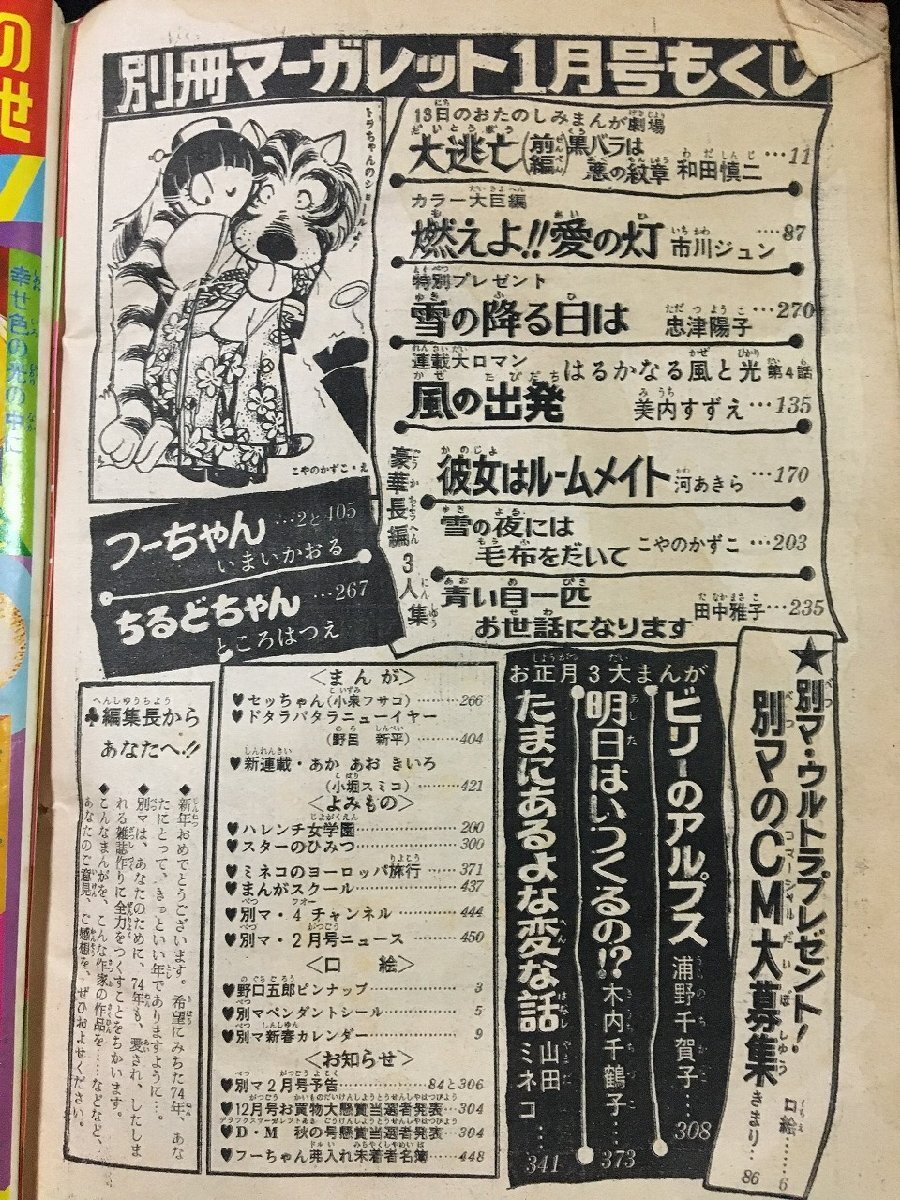 別冊マーガレット1月号もくじ
13日のおたのしみまんが劇場
大逃亡(前編)黒バラは悪の紋章 和田慎二…11
カラー大巨編
燃えよ!!愛の灯 市川ジュン……87
特別プレゼント
雪の降る日は 忠津陽子…270
連載大ロマン はるかなる風と光 第4話
風の出発 美内すずえ…135
豪華長編3人集
彼女はルームメイト 河あきら…170
雪の夜には
毛布をだいて こやのかずこ…203
青い目一匹
お世話になります 田中雅子…235
こやのかずこ・え
フーちゃん…2と405
いまいかおる
ちるどちゃん…267
ところはつえ
★別マ・ウルトラプレゼント!
別マのCM大募集
口絵……6
きまり…86
お正月3大まんが
ビリーのアルプス 浦野千賀子…308
明日はいつくるの!? 木内千鶴子…373
たまにあるよな変な話 山田ミネコ…341
<まんが>
♥セッちゃん(小泉フサコ)……266
♥ドタラバタラニューイヤー
(野呂 新平)……404
♥新連載・あか あお きいろ
(小堀スミコ)……421
<よみもの>
♥ハレンチ女学園……260
♥スターのひみつ……300
♥ミネコのヨーロッパ旅行……371
♥まんがスクール……437
♥別マ・4チャンネル……444
♥別マ・2月号ニュース……450
<口 絵>
♥野口五郎ピンナップ……3
♥別マペンダントシール……5
♥別マ新春カレンダー……9
<お知らせ>
♥別マ2月号予告……84と306
♥12月号お買物大懸賞当選者発表…304
♥D・M 秋の号懸賞当選者発表…304
♥フーちゃん 未着者名簿……448
♣編集長から
あなたへ!!
◆新年おめでとうございます。希望にみちた74年、あな
たにとって、きっといい年でありますように…。
◆別マは、あなたのために、74年も、愛され、したしま
れる雑誌作りに全力をつくすことをちかいます。
◆こんなまんがを、こんな作家の作品を……などなど、
あなたのご意見、ご感想を、ぜひおよせください。
の
せ
幸せ色の光の中に